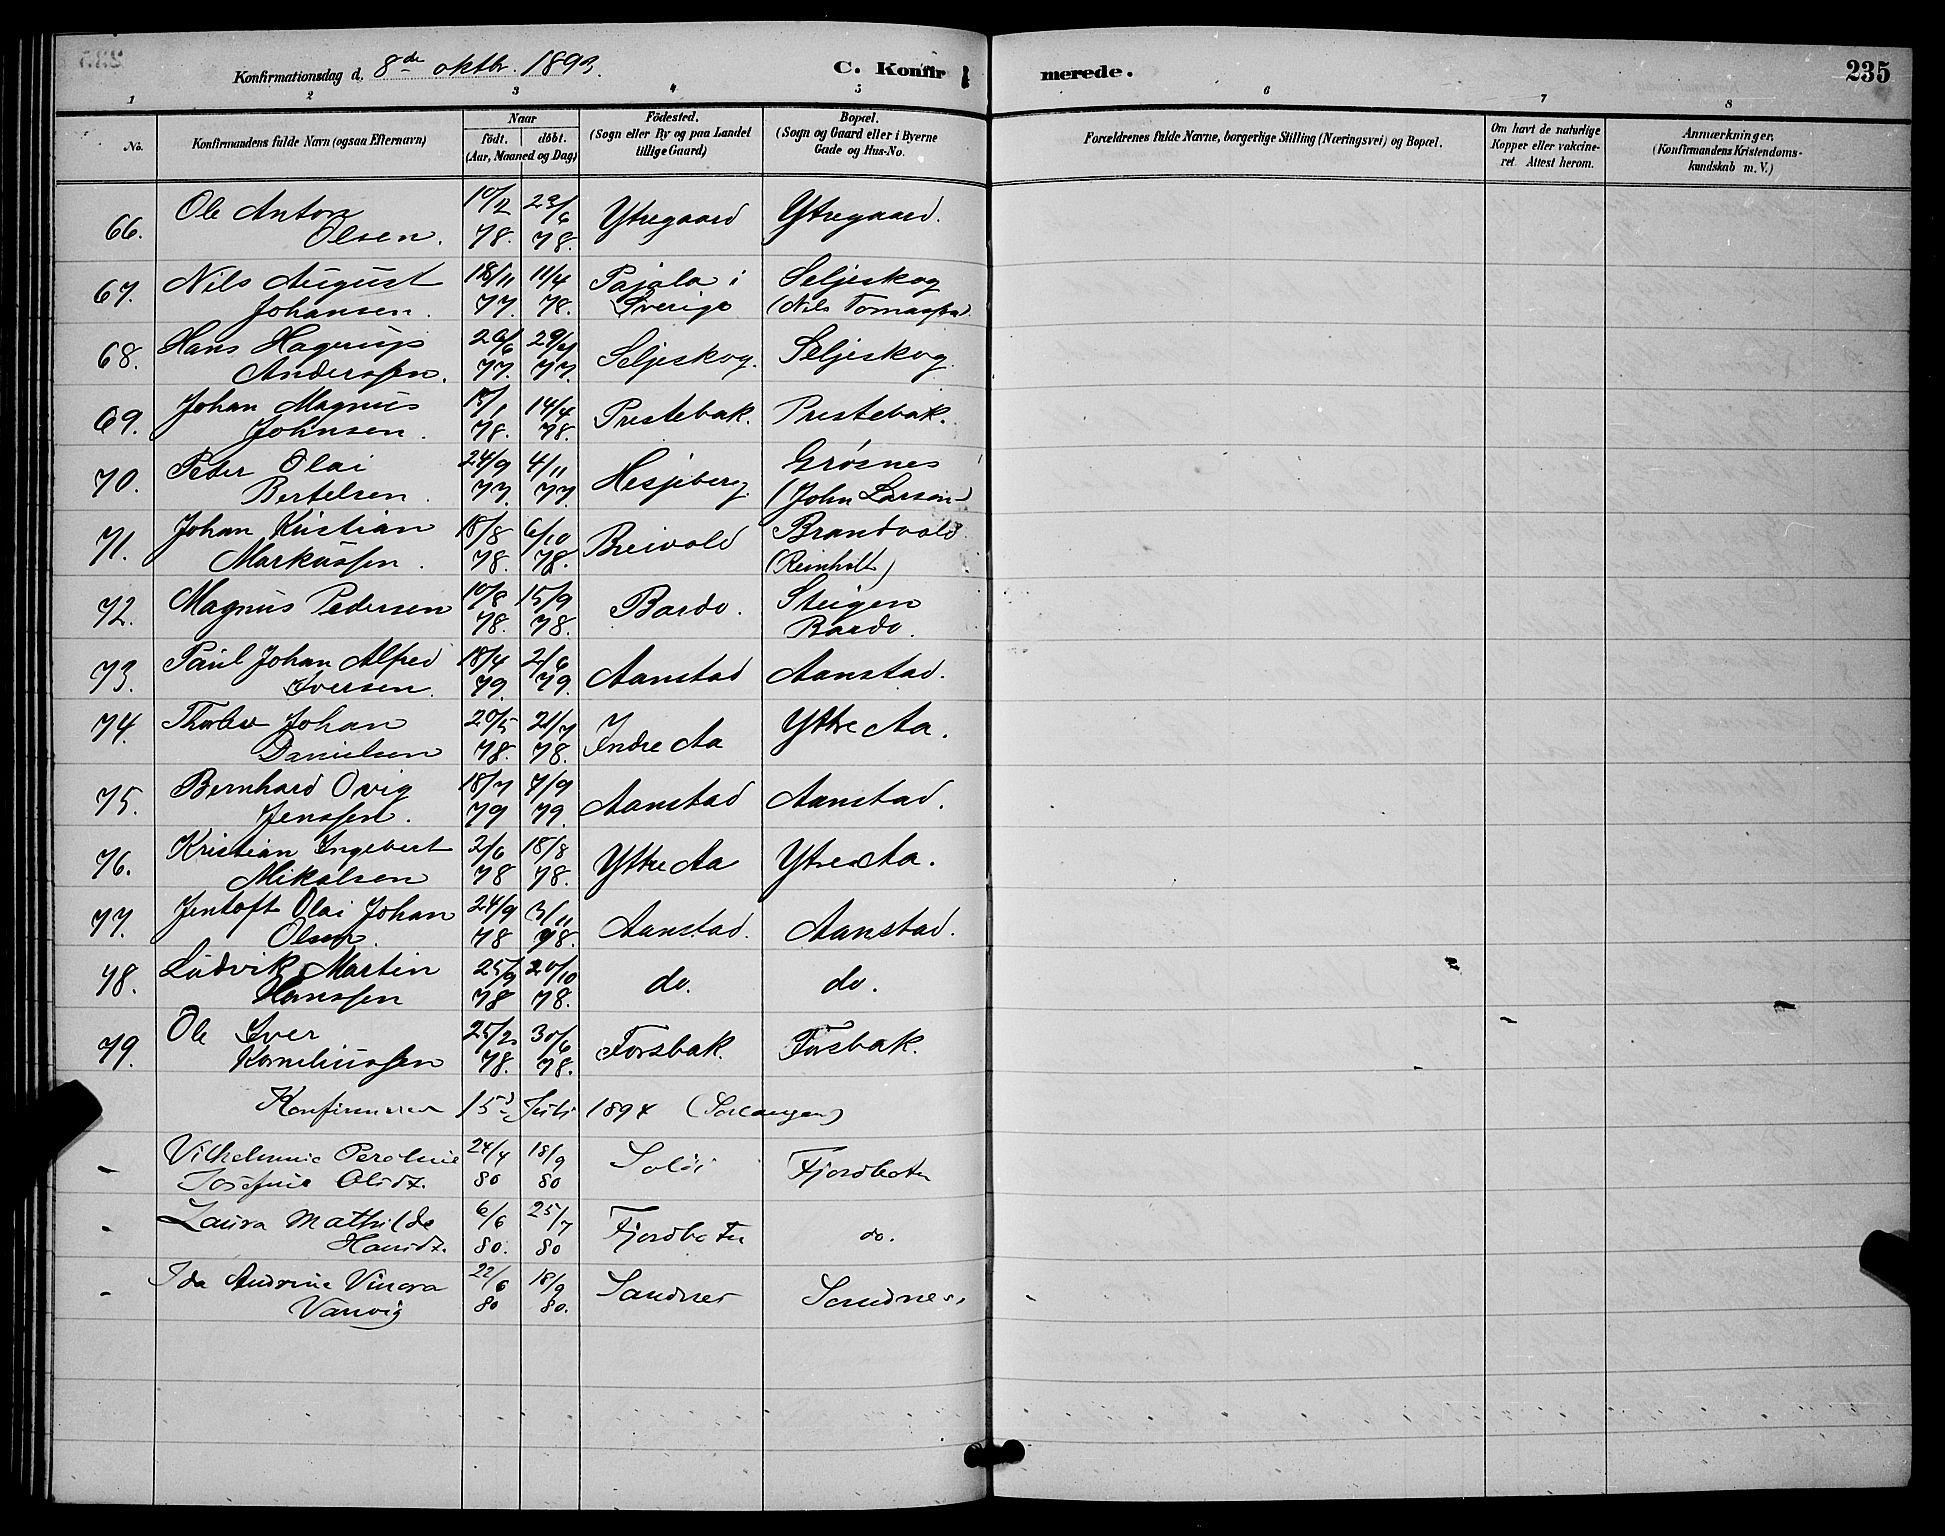 Konfirmationsdag d. 8de oktbr. 1893. C. Konfir merede. 235
1 2 3 4 5 6 7 8
No. Konfirmandens fulde Navn (ogsaa Efternavn) Naar födt. döbt. (Aar, Maaned og Dag) Födested. (Sogn eller By og paa Landet tillige Gaard) Bopæl. (Sogn og Gaard eller i Byerne Gade og Hus-No. Forældrenes fulde Navne, borgerlige Stilling (Næringsvei) og Bopæl. Om havt de naturlige Kopper eller vakcineret. Attest herom. Anmærkninger. (Konfirmandens Kristendomskundskab m. V.)
66. Ole Anton 10/2 23/6 Ytregaard Ytregaard.
Olsen. 78. 78.
67. Nils August 18/11 11/4 Pajala i Seljeskog
Johansen. 77. 78. Sverige (Nils Tomas
68. Hans Hagerup 26/6 29/7 Seljeskog. Seljeskog.
Anderssen. 77. 77.
69. Johan Magnus 15/1 14/4 Prestebak. Prestebak.
Johnsen. 78. 78.
70. Peter Olai 24/9 4/11 Hesjeberg Grøsnes
Bertelsen. 77. 77. (John Larsen)
71. Johan Kristian 18/8 6/10 Breivold Brandvold
Markussen. 78. 78. (Reinholt)
72. Magnus Pedersen 10/8 15/9 Bardo. Steigen
78. 78. Bardo.
73. Paul Johan Alfred 18/4 2/6 Aanstad Aanstad.
Iversen. 79. 79.
74. Johan 20/5 21/7 Indre Aa Yttre Aa.
Danielsen 78. 78.
75. Bernhard Ovig 18/7 7/9 Aanstad Aanstad.
Jenssen. 79 79.
76. Kristian Ingebert 2/6 18/8 Yttre Aa Ytre Aa.
Mikalsen 78 78.
77. Jentoft Olai Johan 24/9 3/11 Aanstad. Aanstad.
Olsen. 78 78.
78. Ludvik Martin 25/9 20/10 do. do.
Hanssen 78 78.
79. Ole Iver 25/2 30/6 Forsbak. Forsbak.
Korneliussen 78. 78.
Konfirmerede 15d Juli 1894 (Salangen)
- Vilhelmine Peroline 24/4 18/9 Fjordbotn
Josefine Olsdt. 80 80
- Laura Mathilde 6/6 25/7 Fjordbotn do.
Hansdt. 80. 80
- Ida Andrine Vinora 22/6 18/9 Sandnes Sandnes.
Vanvig 80 80.